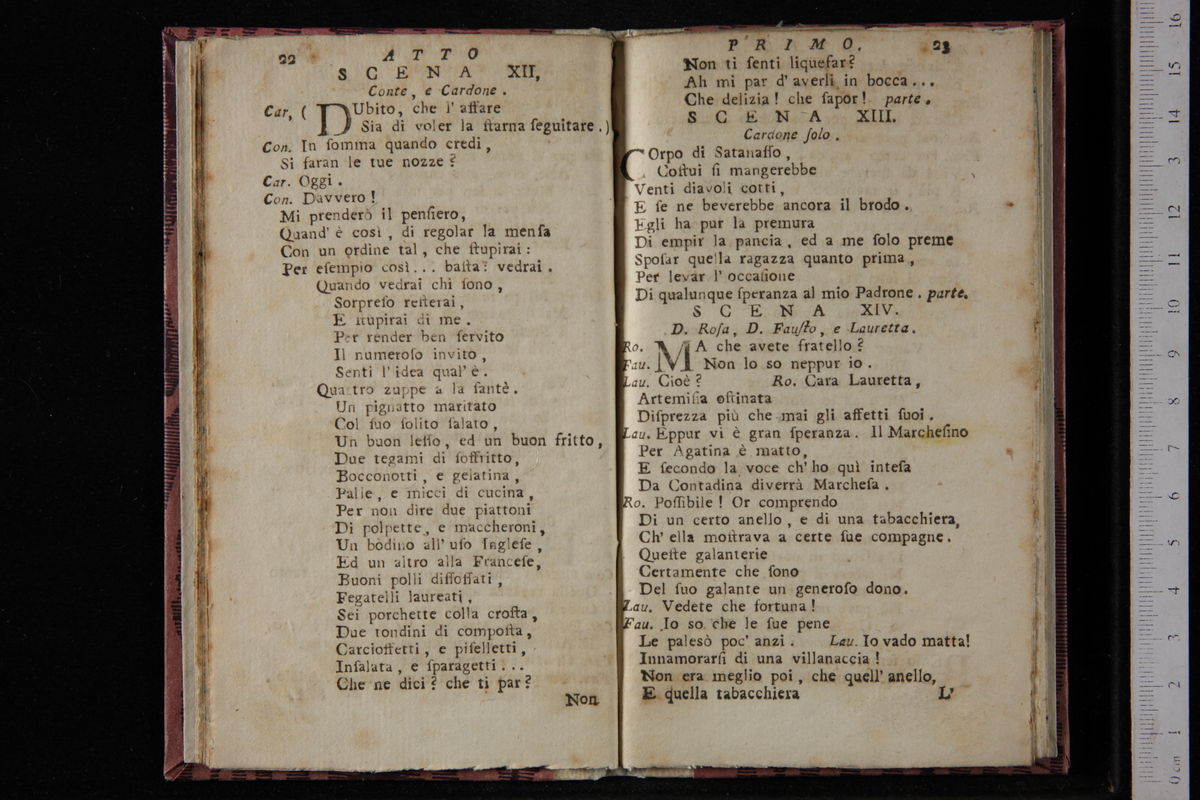 22 ATTO
SCENA XII,
Conte, e Cardone.
Car, ( DUbito, che l' affare
Sia di voler la ſtarna ſeguitare.)
Con. In ſomma quando credi,
Si faran le tue nozze?
Car. Oggi.
Con. Davvero!
Mi prenderò il penſiero,
Quand' è così, di regolar la menſa
Con un ordine tal, che ſtupirai:
Per eſempio così... baſta: vedrai.
Quando vedrai chi ſono,
Sorpreſo reſterai,
E ſtupirai di me.
Per render ben ſervito
Il numeroſo invito,
Senti l' idea qual' è.
Quattro zuppe a la ſantè.
Un pignatto maritato
Col ſuo ſolito ſalato,
Un buon leſſo, ed un buon fritto,
Due tegami di ſoffritto,
Bocconotti, e gelatina,
Palle, e micci di cucina,
Per non dire due piattoni
Di polpette, e maccheroni,
Un bodino all' uſo Ingleſe,
Ed un altro alla Franceſe,
Buoni polli diſſoſſati,
Fegatelli laureati,
Sei porchette colla croſta,
Due tondini di compoſta,
Carcioffetti, e piſelletti,
Inſalata, e ſparagetti...
Che ne dici? che ti par?
Non
PRIMO. 23
Non ti ſenti liquefar?
Ah mi par d' averli in bocca...
Che delizia! che ſapor! parte.
SCENA XIII.
Cardone ſolo.
COrpo di Satanaſſo,
Coſtui ſi mangerebbe
Venti diavoli cotti,
E ſe ne beverebbe ancora il brodo.
Egli ha pur la premura
Di empir la pancia, ed a me ſolo preme
Spoſar quella ragazza quanto prima,
Per levar l' occaſione
Di qualunque ſperanza al mio Padrone. parte.
SCENA XIV.
D. Roſa, D. Fauſto, e Lauretta.
Ro. MA che avete fratello?
Fau. Non lo so neppur io.
Lau. Cioè? Ro. Cara Lauretta,
Artemiſia oſtinata
Diſprezza più che mai gli affetti ſuoi.
Lau. Eppur vi è gran ſperanza. Il Marcheſino
Per Agatina è matto,
E ſecondo la voce ch' ho quì inteſa
Da Contadina diverrà Marcheſa.
Ro. Poſſibile! Or comprendo
Di un certo anello, e di una tabacchiera,
Ch' ella moſtrava a certe ſue compagne.
Queſte galanterie
Certamente che ſono
Del ſuo galante un generoſo dono.
Lau. Vedete che fortuna!
Fau. Io so che le ſue pene
Le palesò poc' anzi. Lau. Io vado matta!
Innamorarſi di una villanaccia!
Non era meglio poi, che quell' anello,
E quella tabacchiera L'
0 cm 1 2 3 4 5 6 7 8 9 10 11 12 13 14 15 16